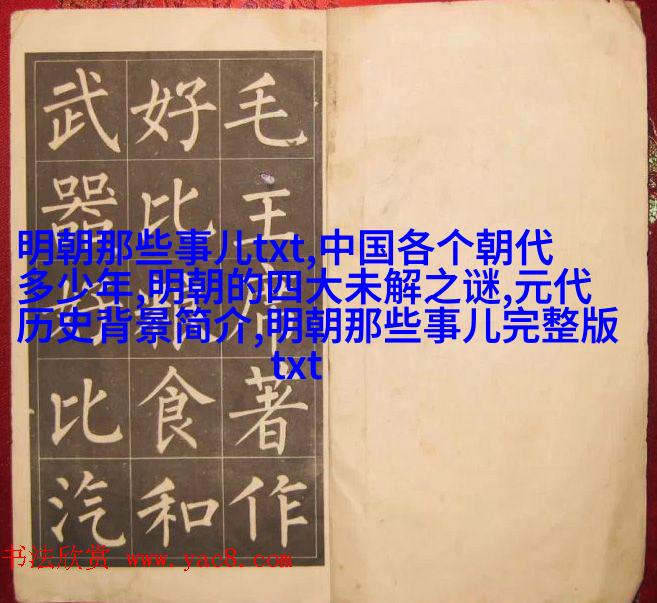 毛主席著作
好比食和
武器比汽
明朝那些事儿txt,中国各个朝代
多少年,明朝的四大未解之谜,元代
历史背景简介,明朝那些事儿完整版
txt
书法欣赏 www.yac8.com